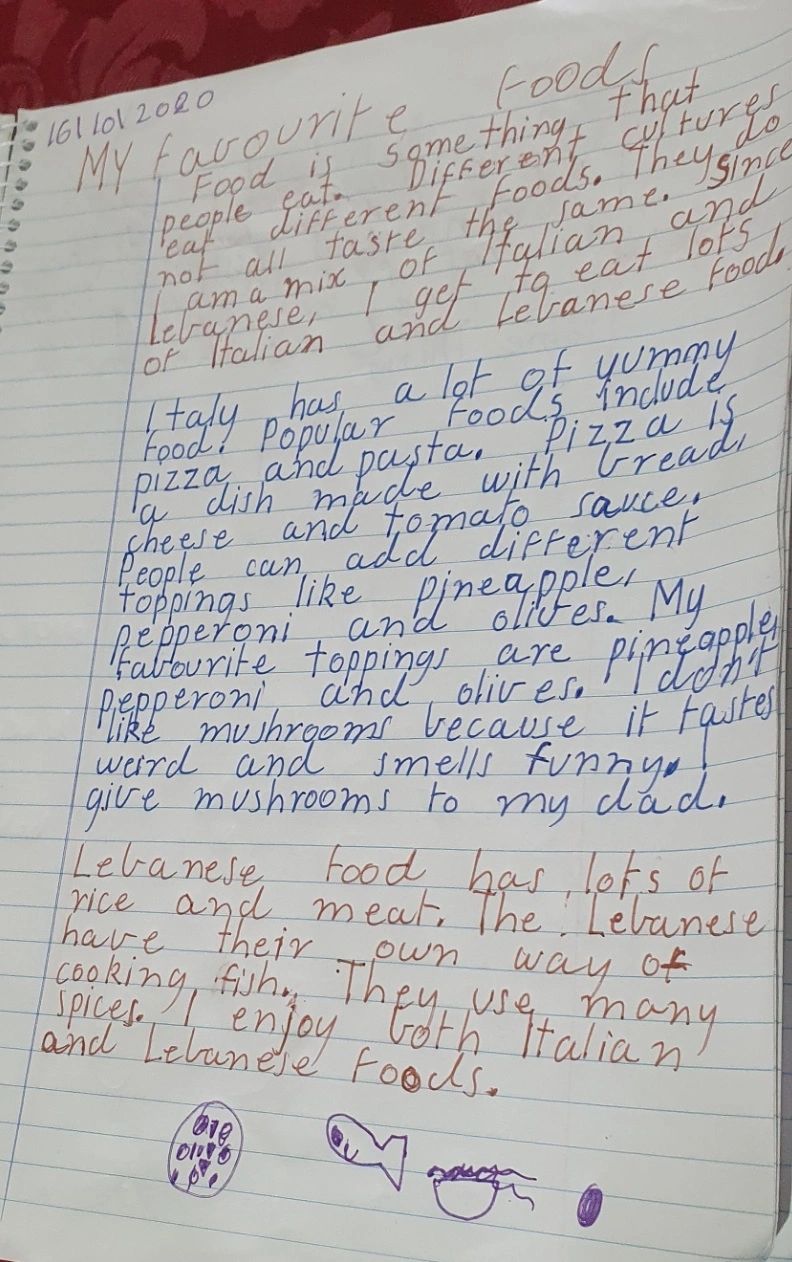 16/10/2020
My Favourite Foods
Food is something that
people eat. Different cultures
eat different foods. They do
not all taste the same. Since
I am a mix of Italian and
Lebanese, I get to eat lots
of Italian and Lebanese food.
Italy has a lot of yummy
food! Popular foods include
pizza and pasta. Pizza is
a dish made with bread,
cheese and tomato sauce.
People can add different
toppings like pineapple,
pepperoni and olives. My
favourite toppings are pineapple,
pepperoni and olives. I don't
like mushrooms because it tastes
weird and smells funny. I
give mushrooms to my dad.
Lebanese food has lots of
rice and meat. The Lebanese
have their own way of
cooking fish. They use many
spices. I enjoy both Italian
and Lebanese Foods.